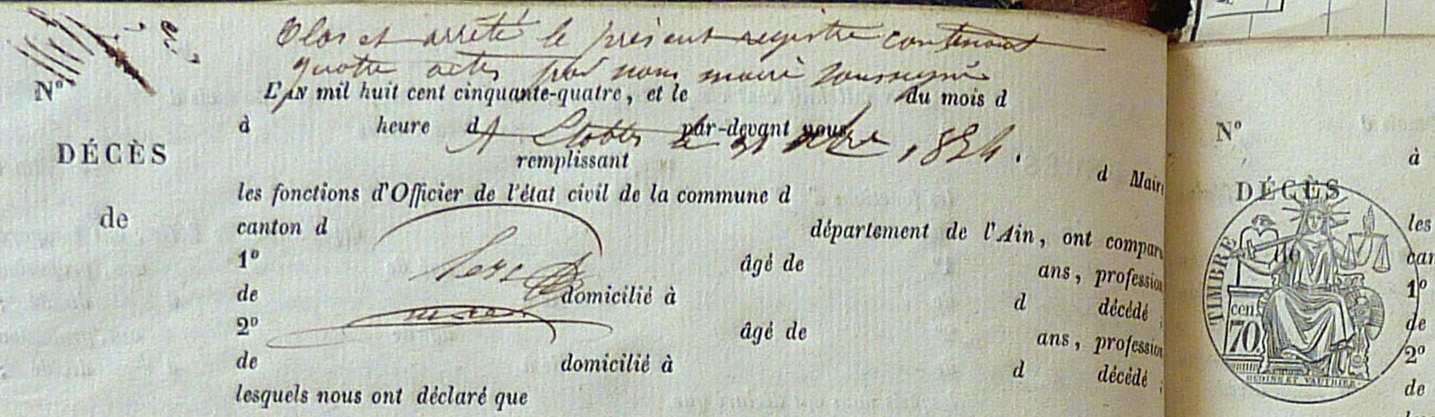 Clos et arrêté le présent registre contenant
quatre actes par nous maire soussigné
Nº
L'AN mil huit cent cinquante-quatre, et le du mois d
à heure d par-devant nous
A le 31 Xbre 1854.
DÉCÈS
remplissant
d Maire
les fonctions d'Officier de l'état civil de la commune d
de
canton d département de l'Ain, ont compar
1º âgé de ans, profession
de domicilié à d décédé,
maire
2º âgé de ans, profession
de domicilié à d décédé,
lesquels nous ont déclaré que
Nº
à
DÉCÈS
de
les
can
1º
de
2º
de
TIMBRE
cen. 70